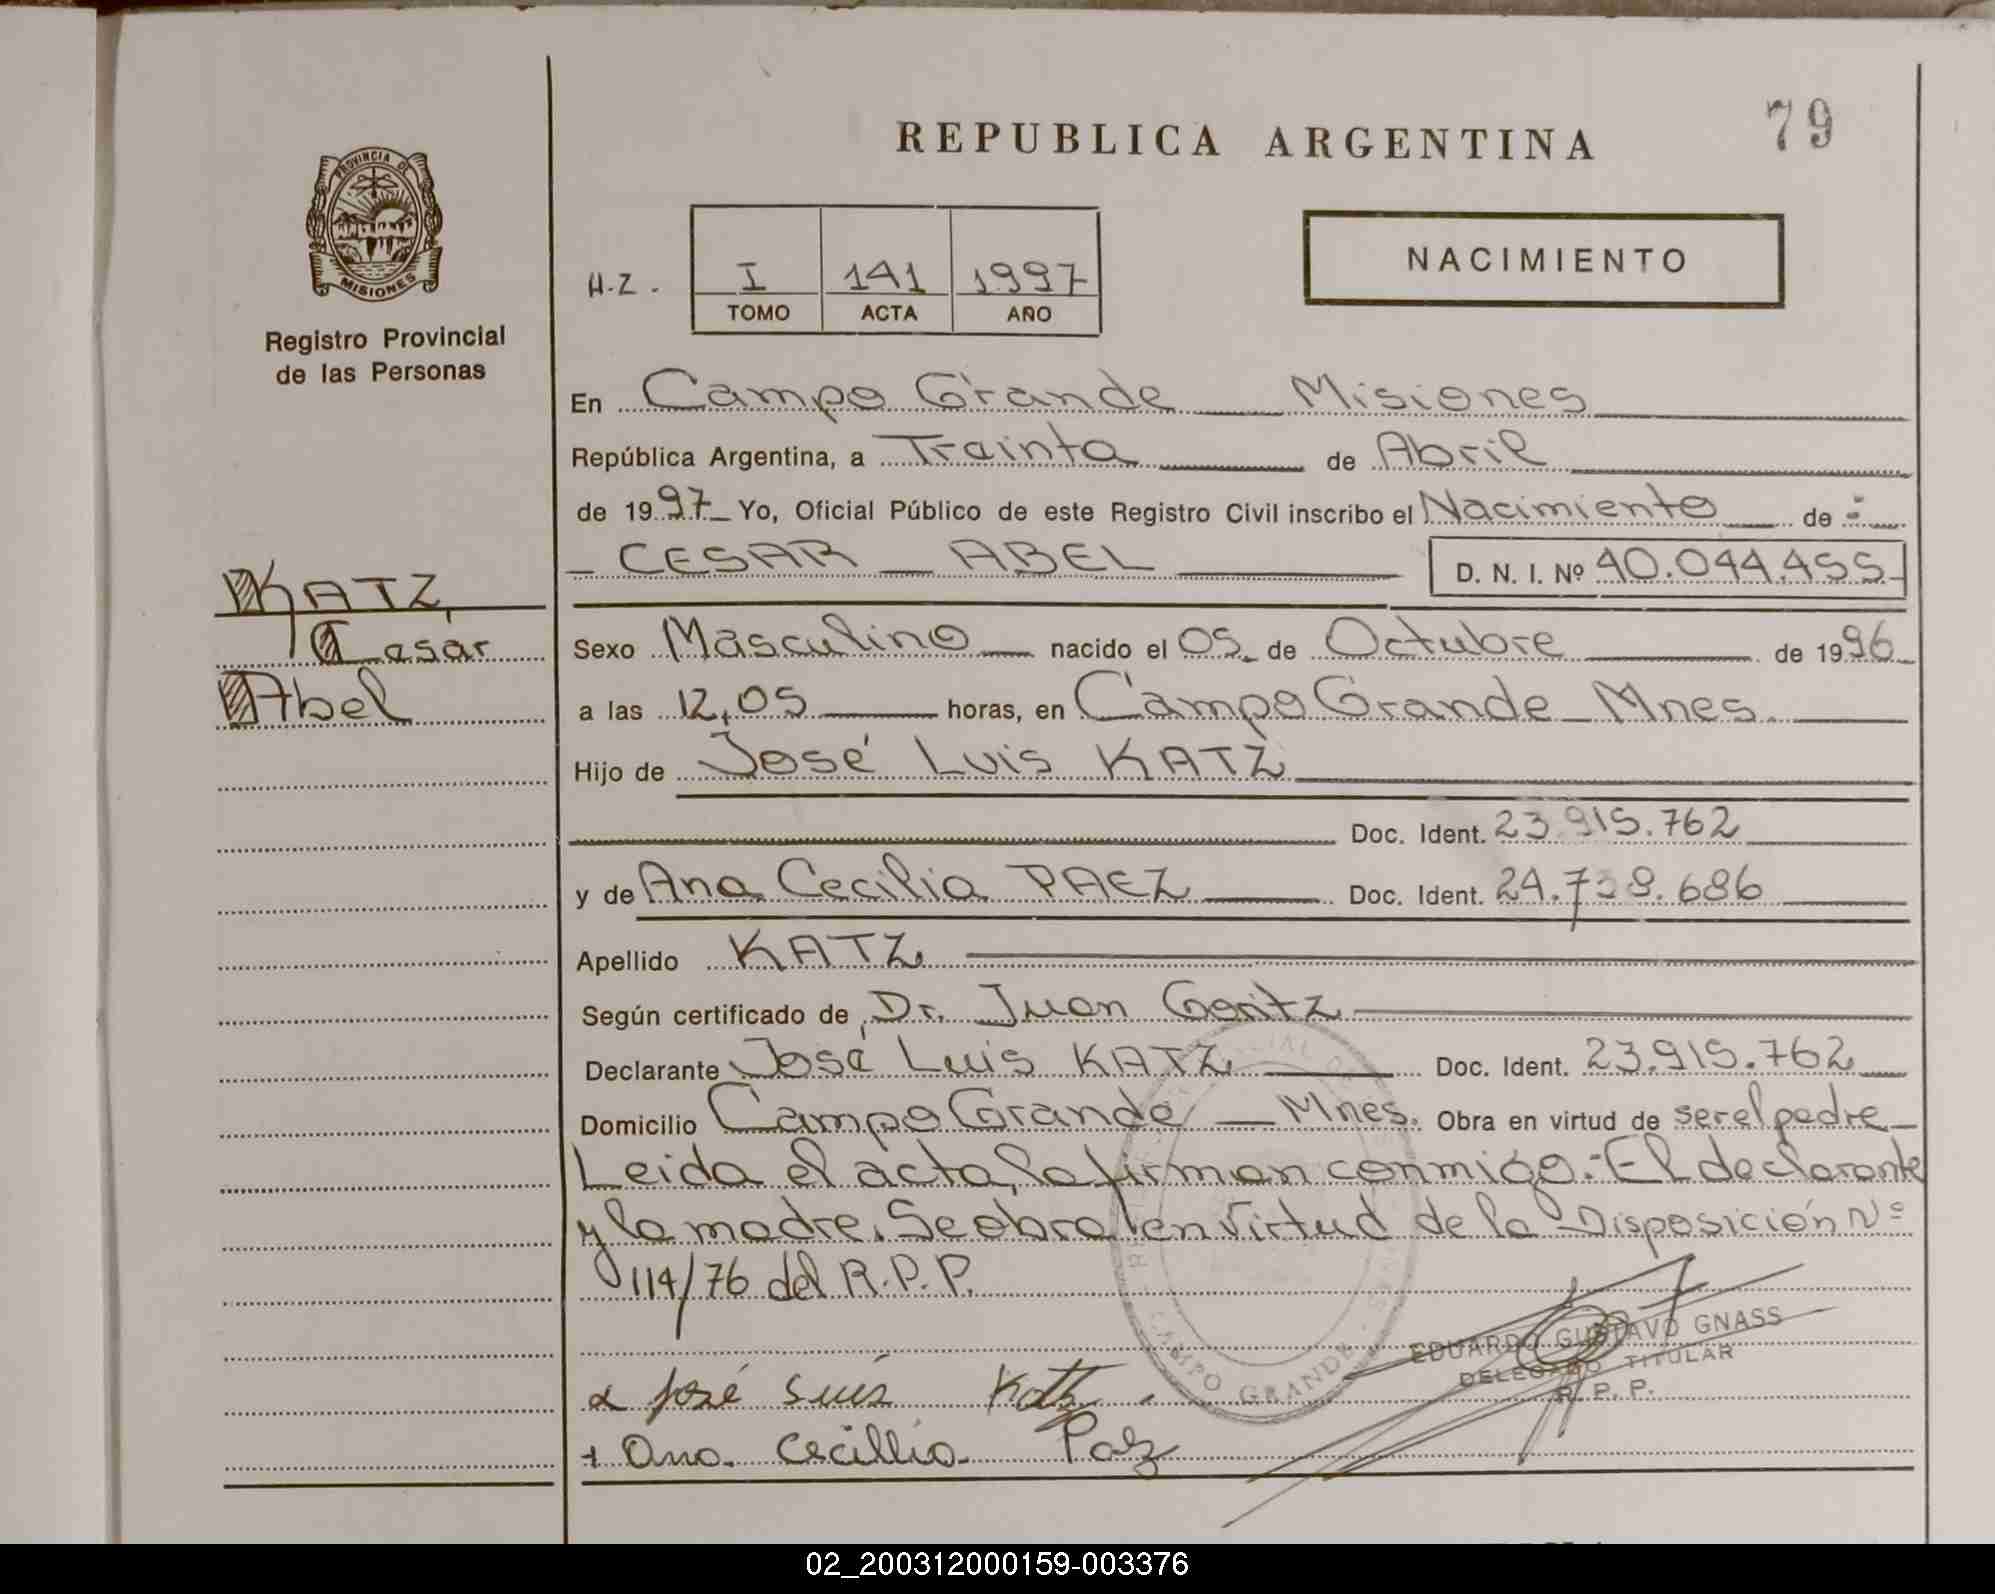 79
REPUBLICA ARGENTINA
PROVINCIA DE
MISIONES
Registro Provincial
de las Personas
H.Z. I 141 1997
TOMO ACTA AÑO
NACIMIENTO
En Campo Grande Misiones
República Argentina, a Treinta de Abril
de 1997 Yo, Oficial Público de este Registro Civil inscribo el Nacimiento de
CESAR ABEL D. N. I. Nº 40.044.455
KATZ,
Cesar
Abel
Sexo Masculino nacido el 05 de Octubre de 1996
a las 12,05 horas, en Campo Grande Mnes.
Hijo de José Luis KATZ
Doc. Ident. 23.915.762
y de Ana Cecilia PAEZ Doc. Ident.
Apellido KATZ
Según certificado de Dr. Juan Goritz
Declarante José Luis KATZ Doc. Ident. 23.915.762
Domicilio Campo Grande Mnes. Obra en virtud de ser el padre
Leida el acta, la firman conmigo: El declarante
y la madre. Se obra en virtud de la Disposición Nº
114/76 del R.P.P.
CAMPO GRANDE
EDUARDO GUSTAVO GNASS
DELEGADO TITULAR
R. P. P.
José Luis Katz
+ Ana Cecillia Paz
02_200312000159-003376